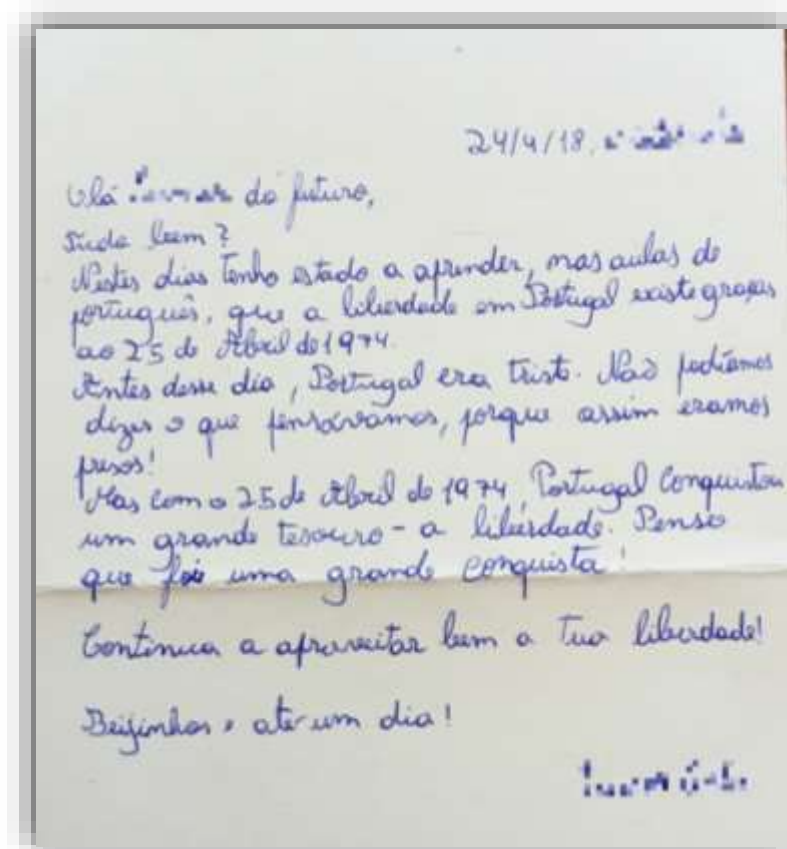 24/4/18,
Olá do futuro,
Tudo bem?
Nestes dias tenho estado a aprender, nas aulas de
português, que a liberdade em Portugal existe graças
ao 25 de Abril de 1974.
Antes desse dia, Portugal era triste. Não podíamos
dizer o que pensávamos, porque assim eramos
presos!
Mas com o 25 de Abril de 1974, Portugal conquistou
um grande tesouro - a liberdade. Penso
que foi uma grande conquista!
Continua a aproveitar bem a tua liberdade!
Beijinhos e até um dia!